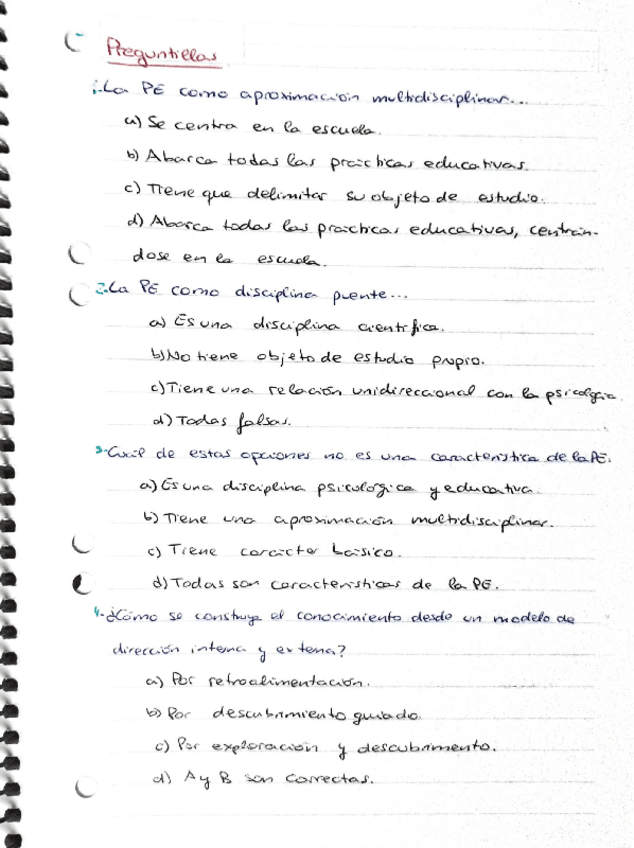 Preguntillas
1. La PE como aproximación multidisciplinar...
a) Se centra en la escuela.
b) Abarca todas las prácticas educativas.
c) Tiene que delimitar su objeto de estudio.
d) Abarca todas las prácticas educativas, centrán-
dose en la escuela.
2. La PE como disciplina puente...
a) Es una disciplina científica.
b) No tiene objeto de estudio propio.
c) Tiene una relación unidireccional con la psicología.
d) Todas falsas.
3. Cuál de estas opciones no es una característica de la PE.
a) Es una disciplina psicológica y educativa.
b) Tiene una aproximación multidisciplinar.
c) Tiene carácter básico.
d) Todas son características de la PE.
4. ¿Cómo se construye el conocimiento desde un modelo de
dirección interna y externa?
a) Por retroalimentación.
b) Por descubrimiento guiado.
c) Por exploración y descubrimento.
d) A y B son correctas.